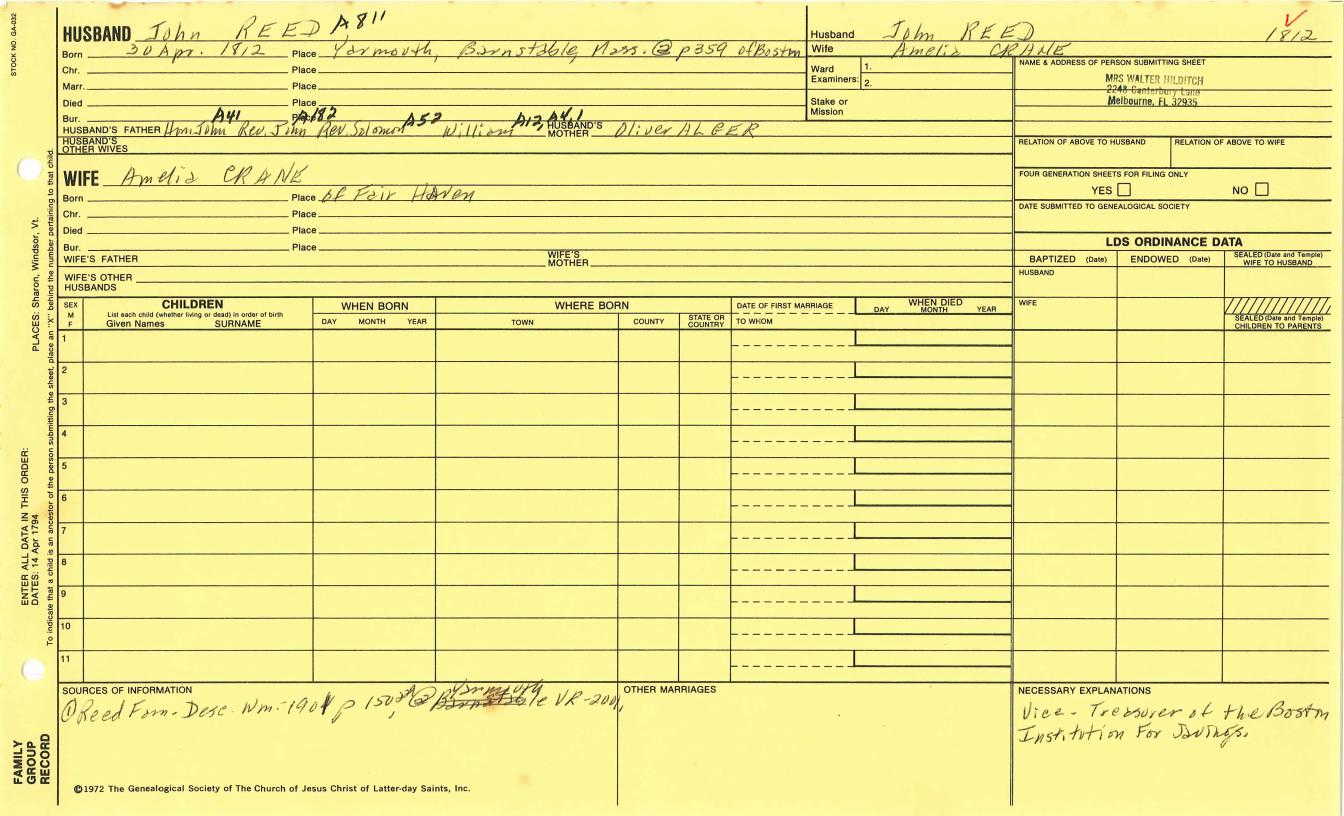 STOCK NO. GA-032
HUSBAND John REED A811
Born 30 Apr. 1812 Place Yarmouth, Barnstable, Mass. @ p359 of Boston
Chr. Place
Marr. Place
Died Place
Bur. Place
A41 A182 A52 A12, A4.1
HUSBAND'S FATHER Hon. John Rev. John Rev. Solomon William HUSBAND'S MOTHER Oliver ALGER
HUSBAND'S OTHER WIVES
Husband John REED 1812
Wife Amelia CRANE
Ward Examiners: 1.
2.
Stake or Mission
NAME & ADDRESS OF PERSON SUBMITTING SHEET
MRS WALTER HILDITCH
2248 Canterbury Lane
Melbourne, FL 32935
RELATION OF ABOVE TO HUSBAND RELATION OF ABOVE TO WIFE
FOUR GENERATION SHEETS FOR FILING ONLY
YES NO
DATE SUBMITTED TO GENEALOGICAL SOCIETY
WIFE Amelia CRANE
Born Place of Fair Haven
Chr. Place
Died Place
Bur. Place
WIFE'S FATHER WIFE'S MOTHER
WIFE'S OTHER HUSBANDS
LDS ORDINANCE DATA
BAPTIZED (Date) ENDOWED (Date) SEALED (Date and Temple) WIFE TO HUSBAND
HUSBAND
WIFE
SEALED (Date and Temple) CHILDREN TO PARENTS
SEX M F
CHILDREN
List each child (whether living or dead) in order of birth
Given Names SURNAME
WHEN BORN
DAY MONTH YEAR
WHERE BORN
TOWN COUNTY STATE OR COUNTRY
DATE OF FIRST MARRIAGE
TO WHOM
WHEN DIED
DAY MONTH YEAR
1
2
3
4
5
6
7
8
9
10
11
SOURCES OF INFORMATION
① Reed Fam- Desc. Wm.-1901 p 150 @ Yarmouth VR-200
OTHER MARRIAGES
NECESSARY EXPLANATIONS
Vice - Treasurer of the Boston
Institution For Savings.
©1972 The Genealogical Society of The Church of Jesus Christ of Latter-day Saints, Inc.
FAMILY
GROUP
RECORD
ENTER ALL DATA IN THIS ORDER:
DATES: 14 Apr 1794
PLACES: Sharon, Windsor, Vt.
To indicate that a child is an ancestor of the person submitting the sheet, place an "X" behind the number pertaining to that child.